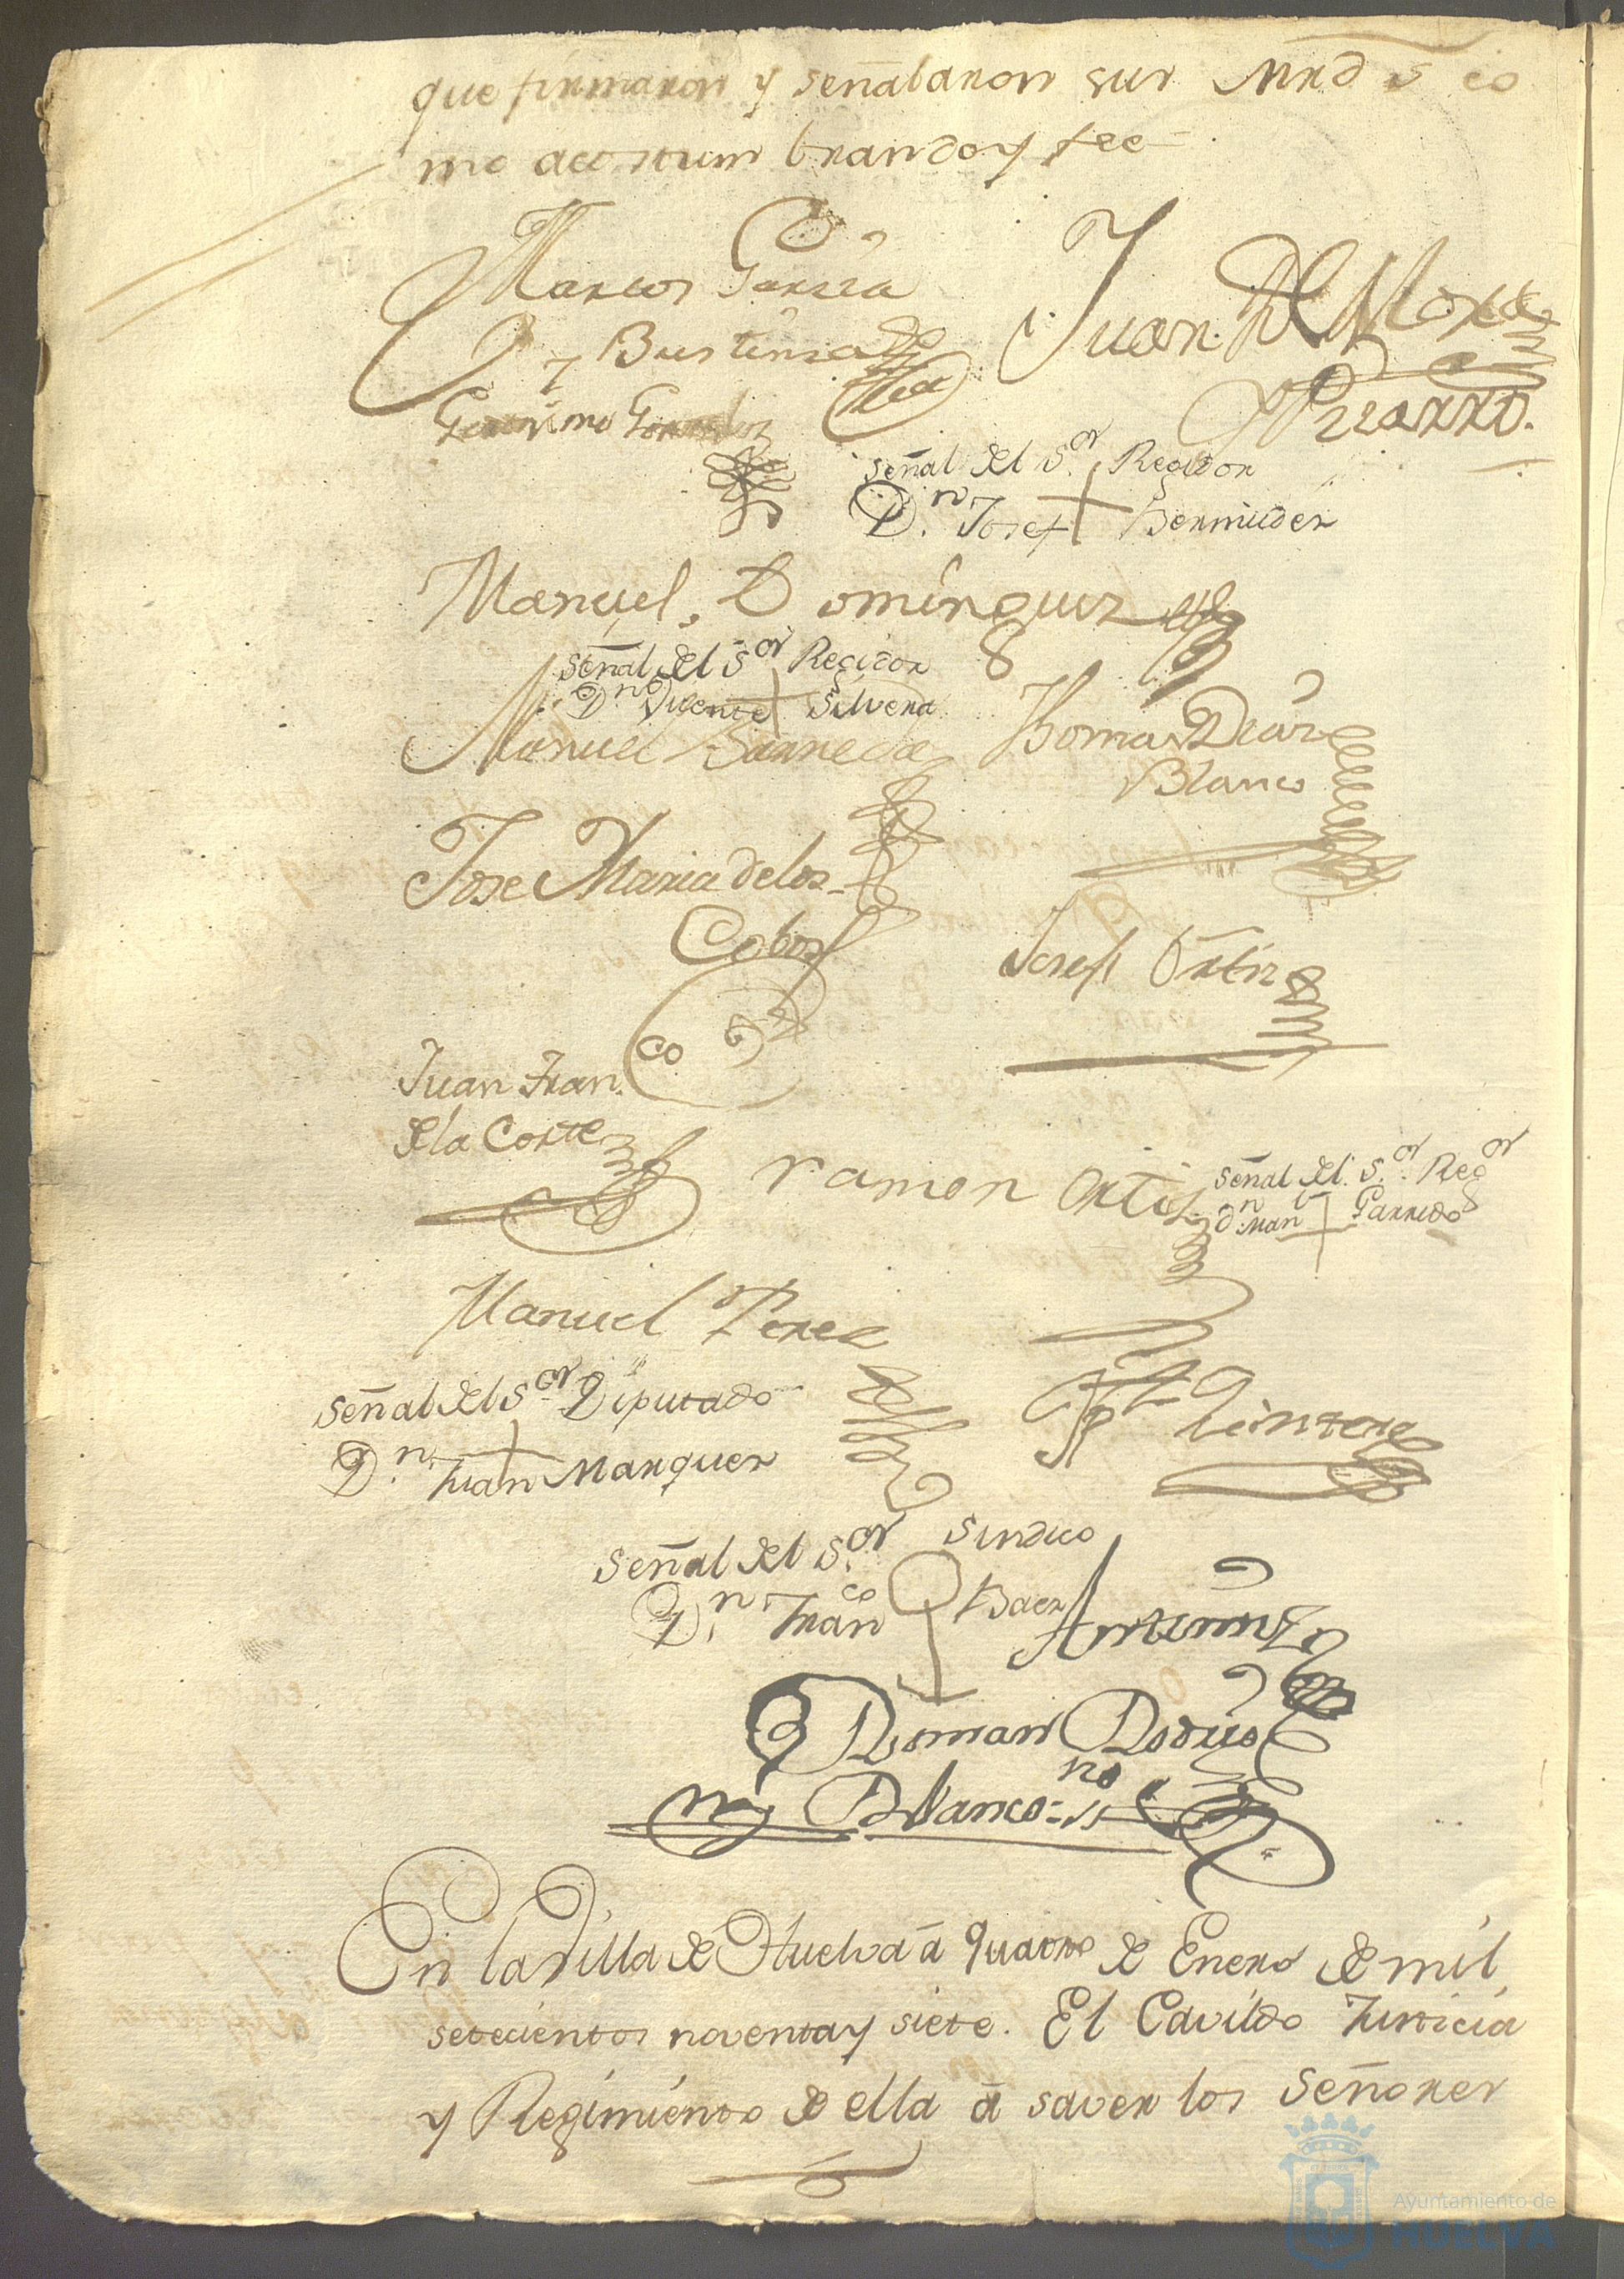 que firmaron y señalaron sus Mrds co
mo acostumbran doy fee=
Marcos Garsia
y Bustinsa
Juan De Mora
Pizarro.
Geronimo Gonzalez
señal del s.or Regidor
D.n Josef + Bermudez
Manuel Dominguez
señal del s.or Regidor
D.n Vicente + Silvera
Manuel Barreda
Thomas Diaz
Blanco
Jose Maria de los
Cobos
Josef Ortiz
Juan Fran.co
de la Corte
ramon Ortiz
señal del s.or Reg.or
d.n Man.l + Garrido
Manuel Perez
señal del s.or Diputado
D.n Juan + Marquez
Quintero
señal del s.or Sindico
D.n Fran.co Baez
Antemi
Roman Rodrio
Blanco
no
En la Villa de Huelva â quatro de Enero de mil
setecientos noventa y siete. El Cavildo Justicia
y Regimiento de ella â saver los Señores
Ayuntamiento de
HUELVA